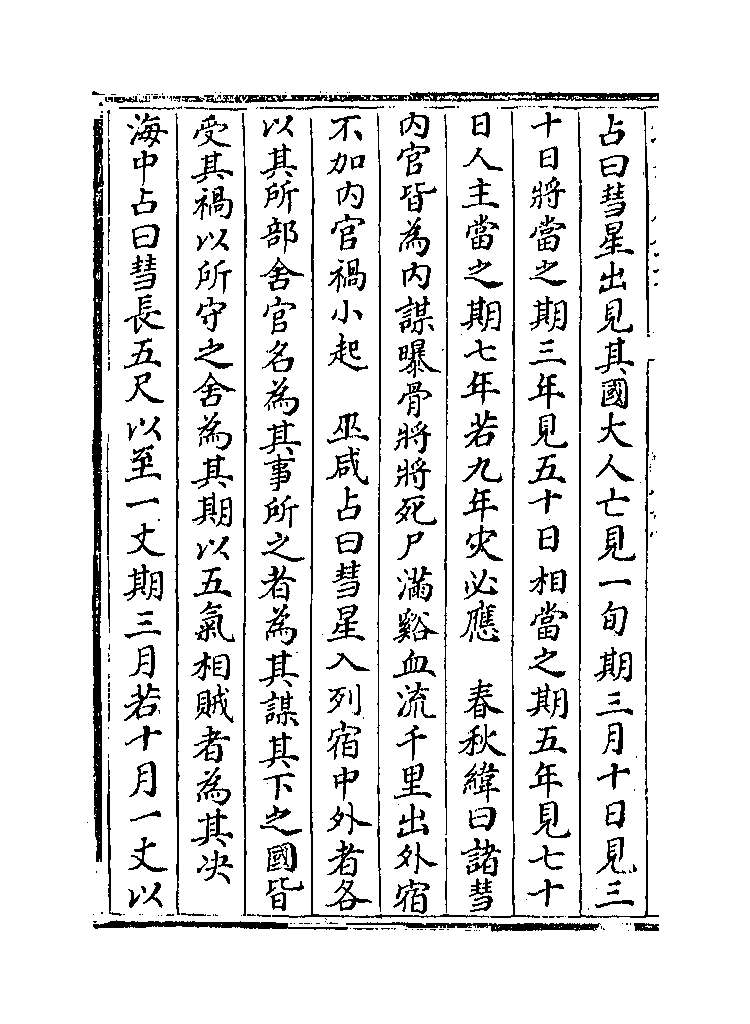 占曰彗星出見其國大人亡見一旬期三月十日見三
十日將當之期三年見五十日相當之期五年見七十
日人主當之期七年若九年灾必應　春秋緯曰諸彗
内官皆為内謀曝骨將將死尸滿谿血流千里出外宿
不加内官禍小起　巫咸占曰彗星入列宿中外者各
以其所部舍官名為其事所之者為其謀其下之國皆
受其禍以所守之舍為其期以五氣相賊者為其决
海中占曰彗長五尺以至一丈期三月若十月一丈以